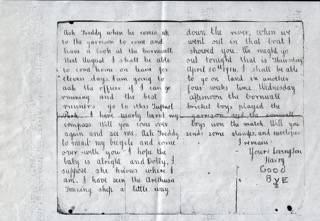 Ask Freddy when he comes up
to the garrison to come and
have a look at the Cornwall
that August I shall be able
to come home on leave for
eleven days. I am going to
ask the officer if I can go
running and the best
runners go to
I have nearly learnt my
compass Will you come over
again and see me. Ask Freddy
to mend my bicycle and come
over with you. I hope the
baby is alright and Dolly. I
suppose she knows where I
am. I have seen the Arethusa
Training ship a little way
down the river, when we
went out in that boat I
showed you. We might go
out tonight that is Thursday
April 20th. I shall be able
to go on land in another
four weeks time. Wednesday
afternoon the Cornwall
cricket boys played the
garrison and the Cornwall
boys won the match Will you
send some stamps and envelopes
I remain
Your Loving Son
Harry
GOOD
BYE